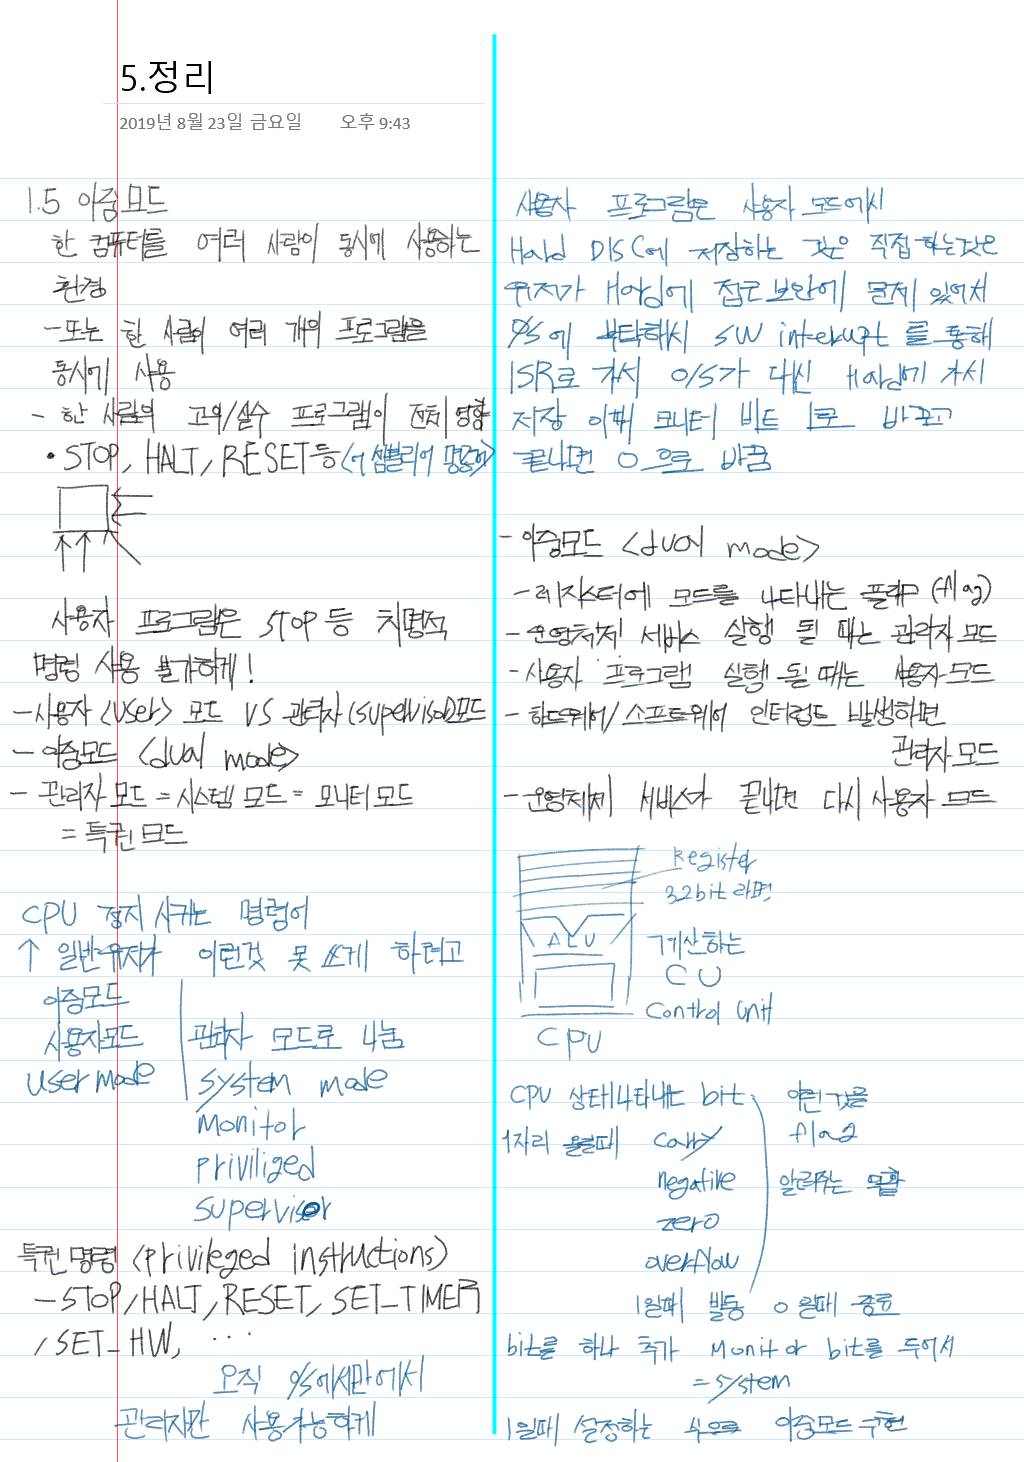 5.정리
2019년 8월 23일 금요일 오후 9:43
1.5 이중모드
한 컴퓨터를 여러 사람이 동시에 사용하는
환경
-또는 한 사람이 여러 개의 프로그램을
동시에 사용
- 한 사람의 고의/실수 프로그램이 전체 영향
• STOP, HALT, RESET등<어셈블리어 명령어>
사용자 프로그램은 STOP 등 치명적
명령 사용 불가하게!
-사용자<user> 모드 VS 관리자(supervisor)모드
- 이중모드 <dual mode>
- 관리자 모드 = 시스템 모드 = 모니터 모드
= 특권 모드
CPU 정지 시키는 명령어
↑ 일반유저가 이런것 못 쓰게 하려고
이중모드
사용자모드 관리자 모드로 나눔
user mode system mode
monitor
priviliged
supervisor
특권 명령 (privileged instructions)
-STOP/HALT, RESET, SET_TIMER
/SET_HW, ...
오직 O/S에서만에서
관리자만 사용가능하게
사용자 프로그램은 사용자 모드에서
Hard DISC에 저장하는 것은 직접 하는것은
유저가 Hard에 접근 보안에 문제 있어서
O/S에 부탁해서 SW interrupt 를 통해
ISR로 가서 O/S가 대신 Hard에 가서
저장 이때 모니터 비트 1로 바꾸고
끝나면 0 으로 바꿈
- 이중모드 <dual mode>
- 레지스터에 모드를 나타내는 플래그 (flag)
- 운영체제 서비스 실행 될 때는 관리자 모드
- 사용자 프로그램 실행 될 때는 사용자 모드
- 하드웨어/소프트웨어 인터럽트 발생하면
관리자 모드
- 운영체제 서비스가 끝나면 다시 사용자 모드
Register
32bit 라면
ALU 계산하는
CU
control unit
CPU
CPU 상태 나타내는 bit 이런 것을
1자리 올릴때 carry flag
negative 알려주는 역할
zero
overflow
1일때 발동 0 일때 종료
bit를 하나 추가 Monitor bit를 두어서
= system
1일때 설정하는 식으로 이중모드 구현